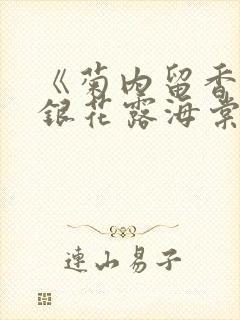 《菊内留香
銀花露海棠
連山易子